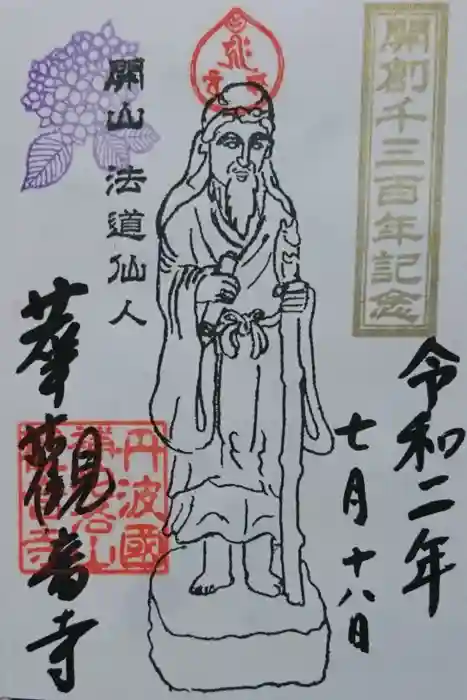 開創千三百年記念
令和二年
七月十八日
開山 法道仙人
丹波國
華觀音寺